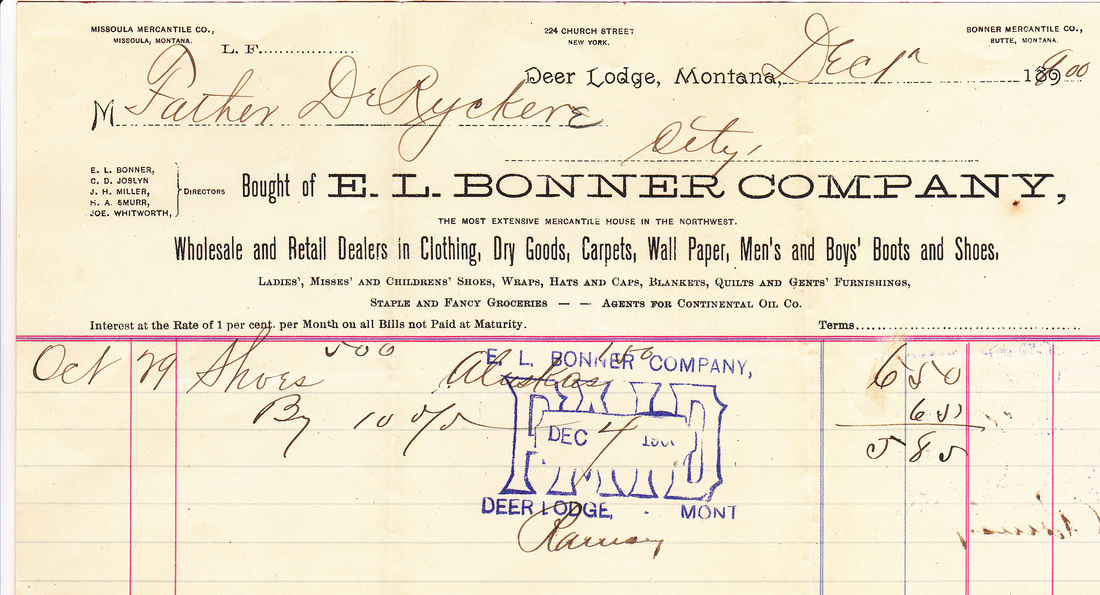 MISSOULA MERCANTILE CO.,
MISSOULA, MONTANA.
224 CHURCH STREET
NEW YORK.
BONNER MERCANTILE CO.,
BUTTE, MONTANA.
L. F.
Deer Lodge, Montana, Dec 1st 1900
M Father DeRyckere
City,
E. L. BONNER,
C. D. JOSLYN
J. H. MILLER,
H. A. SMURR,
JOE. WHITWORTH,
DIRECTORS
Bought of E. L. BONNER COMPANY,
THE MOST EXTENSIVE MERCANTILE HOUSE IN THE NORTHWEST.
Wholesale and Retail Dealers in Clothing, Dry Goods, Carpets, Wall Paper, Men's and Boys' Boots and Shoes.
LADIES', MISSES' AND CHILDRENS' SHOES, WRAPS, HATS AND CAPS, BLANKETS, QUILTS AND GENTS' FURNISHINGS,
STAPLE AND FANCY GROCERIES — — AGENTS FOR CONTINENTAL OIL CO.
Interest at the Rate of 1 per cent. per Month on all Bills not Paid at Maturity.
Terms
Oct 29 Shoes 500 Alaskas 150 6 50
By 10 % 65
5 85
E. L. BONNER COMPANY,
PAID
DEC 4 1900
DEER LODGE, MONT
Ramsay